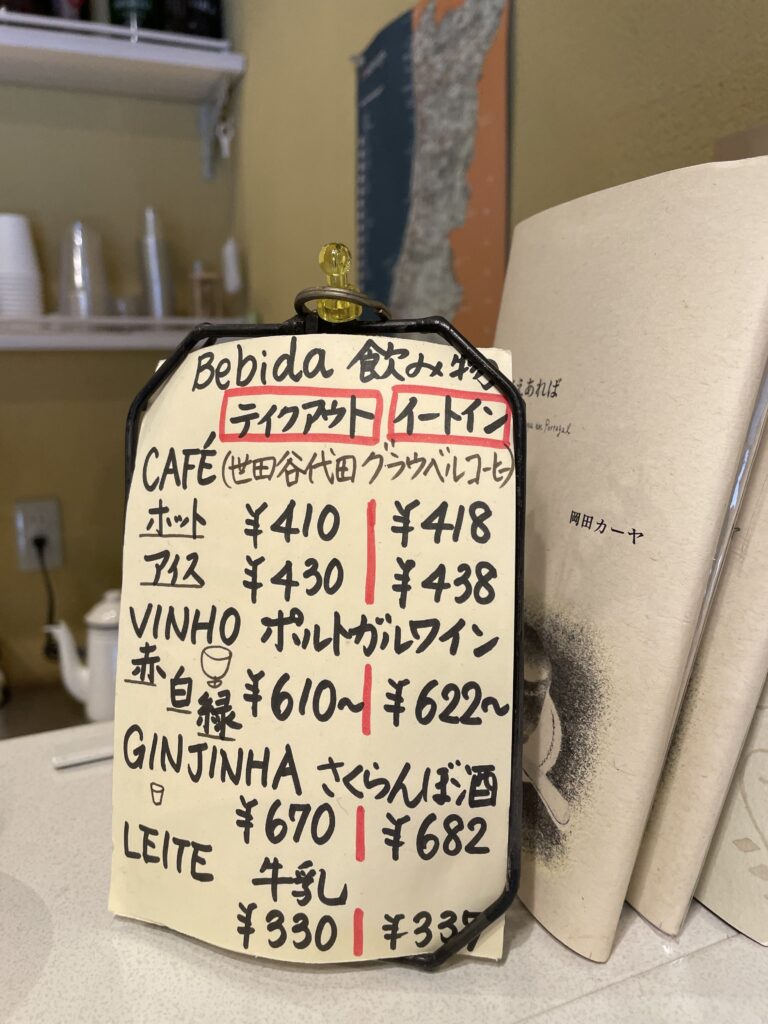 Bebida 飲み物
テイクアウト イートイン
CAFÉ (世田谷代田グラウベルコーヒー)
ホット ¥410 ¥418
アイス ¥430 ¥438
VINHO ポルトガルワイン
赤 白 緑 ¥610~ ¥622~
GINJINHA さくらんぼ酒
¥670 ¥682
LEITE 牛乳
¥330 ¥337
えあれば
岡田カーヤ